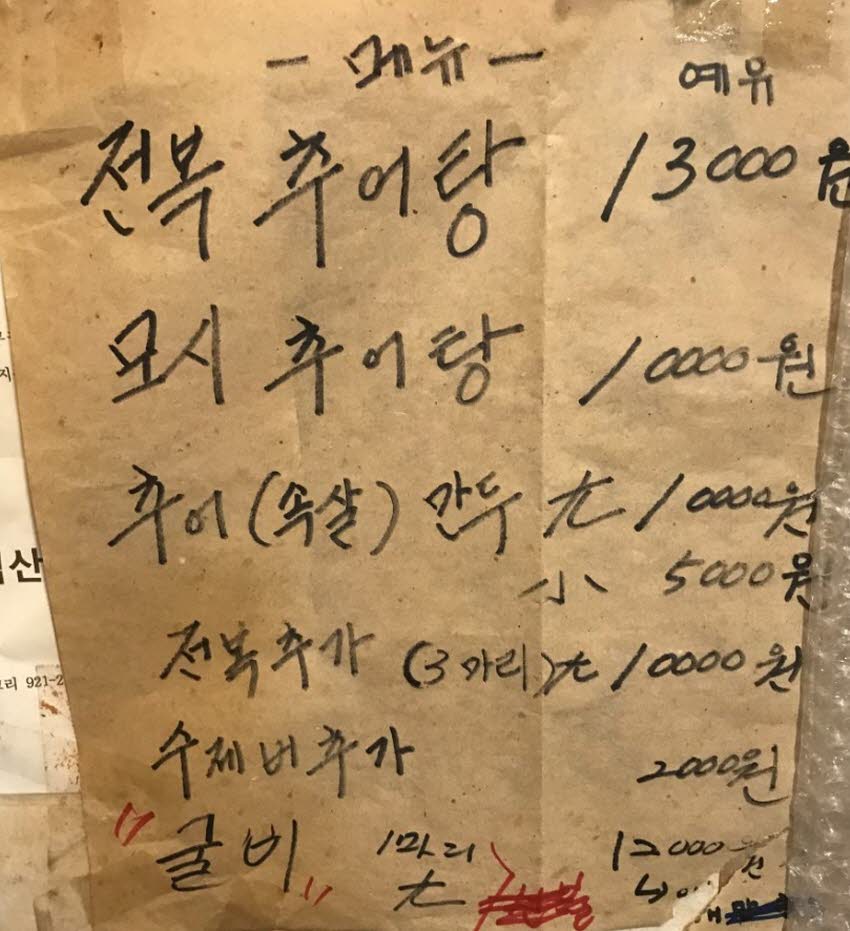 - 메뉴 -
예유
전복 추어탕 13000원
모시 추어탕 10000원
추어(속살) 만두 大 10000원
小 5000원
전복추가 (3마리)大 10000원
수제비추가 2000원
"굴비" 1마리 12000원
大
산
리 921-2